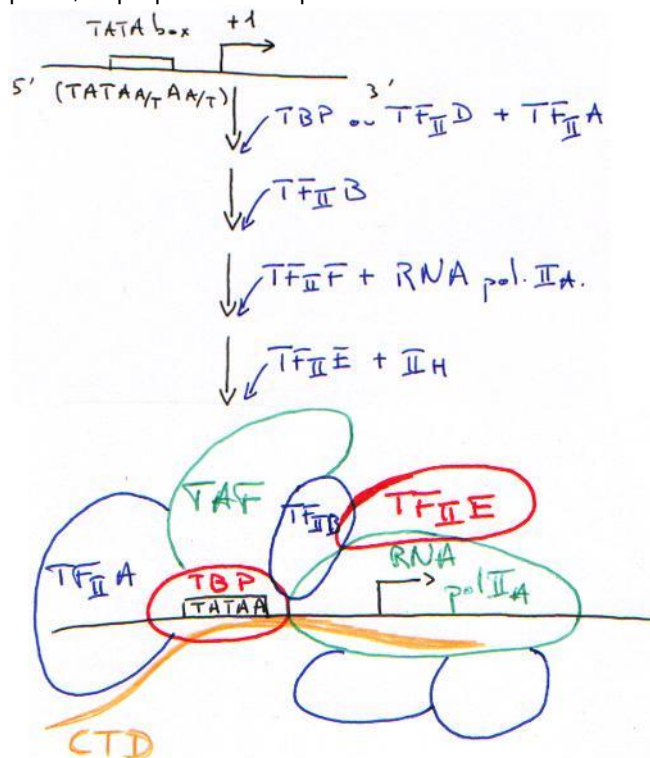 TATA box +1
5' 3'
(TATAA/T AA/T)
TBP ou TFIID + TFIIA
TFIIB
TFIIF + RNA pol. IIA.
TFIIE + IIH
TAF
TFIIB
TFIIE
TFIIA
TBP
RNA
pol IIA
TATAA
CTD